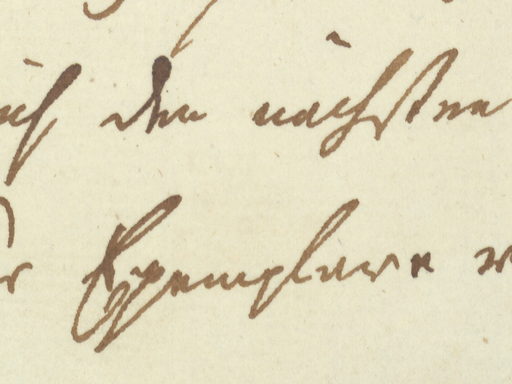 ich den nächsten
Exemplare